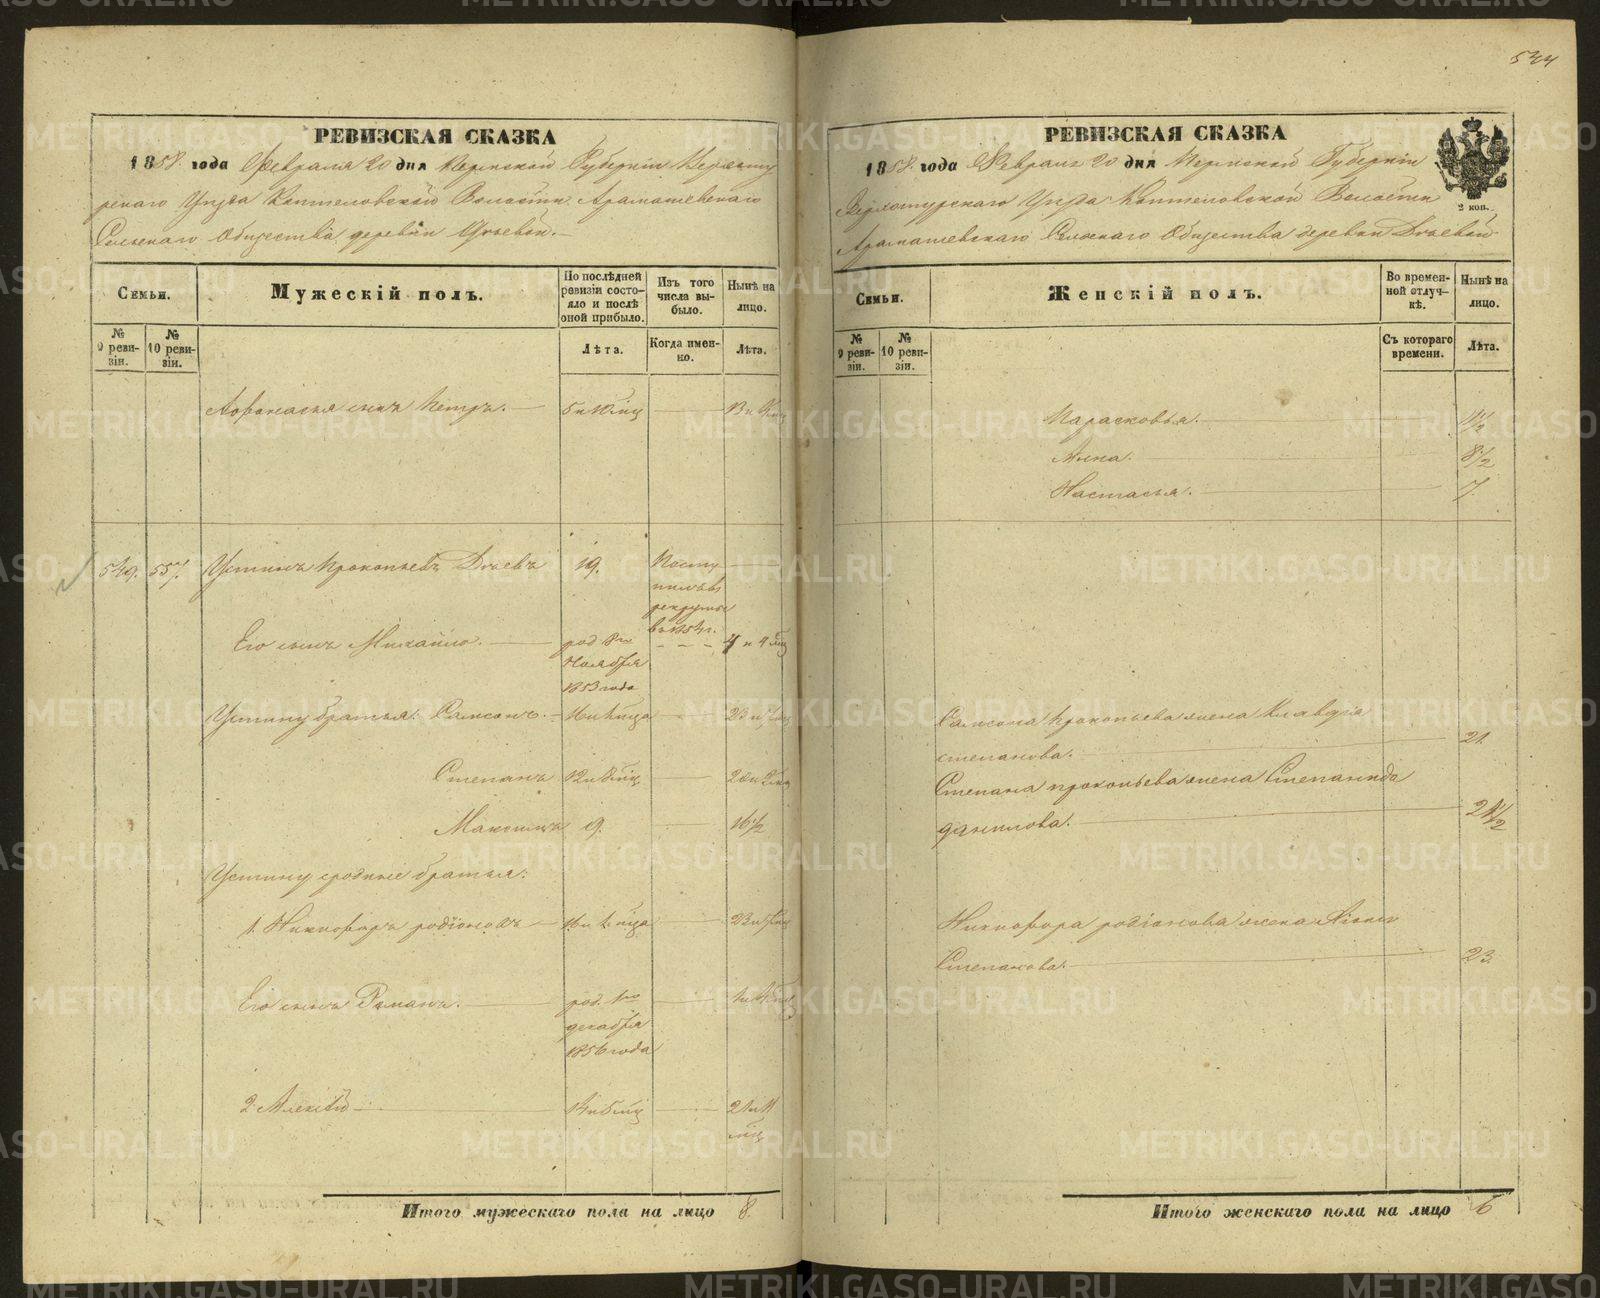 544
РЕВИЗСКАЯ СКАЗКА
1858 года Февраля 20 дня Пермской Губернии Верхоту
рскаго Уѣзда Коптеловской Волости Арамашевскаго
Сельскаго Общества деревни
Семьи.
Мужескій полъ.
По послѣдней ревизіи состояло и послѣ оной прибыло.
Изъ того числа выбыло.
Нынѣ на лицо.
№ 9 ревизіи.
№ 10 ревизіи.
Лѣта.
Когда именно.
Лѣта.
Афонасья сынъ Петръ.
549. 557. Устинъ Прокопьевъ 19. Посту
пилъ въ
рекруты
въ 1854 г.
Его сынъ Михайло. род 8го 4 и 4 мц
Ноября
1853 года
Устину братья: Самсонъ.
Степанъ
Максимъ 9. 16 1/2
Устину сродные братья:
1. Никифоръ родіоновъ
Его сынъ Романъ. род. 1го
декабря
1856 года
2. Алексѣй
Итого мужескаго пола на лицо 8.
РЕВИЗСКАЯ СКАЗКА
1858 года Февраля 20 дня Пермской Губерніи
2 коп.
Верхотурскаго Уѣзда Коптеловской Волости
Арамашевскаго Сельскаго Общества деревни
Семьи.
Женскій полъ.
Во временной отлучкѣ.
Нынѣ на лицо.
№ 9 ревизіи.
№ 10 ревизіи.
Съ котораго времени.
Лѣта.
Парасковья. 11 1/2
Анна. 8 1/2
Настасья. 7
Самсона Прокопьева жена Клавдія
степанова. 21.
Степана прокопьева жена Степанида
данилова. 21 1/2
Никифора родіонова жена
Степанова. 23.
Итого женскаго пола на лицо 6
METRIKI.GASO-URAL.RU